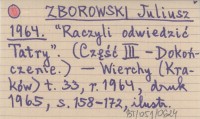 ZBOROWSKI Juliusz
1964. "Raczyli odwiedzić
Tatry". (Część III - Dokoń-
czenie.) - Wierchy (Kra-
ków) t. 33, r. 1964, druk
1965, s. 158-172, ilustr.